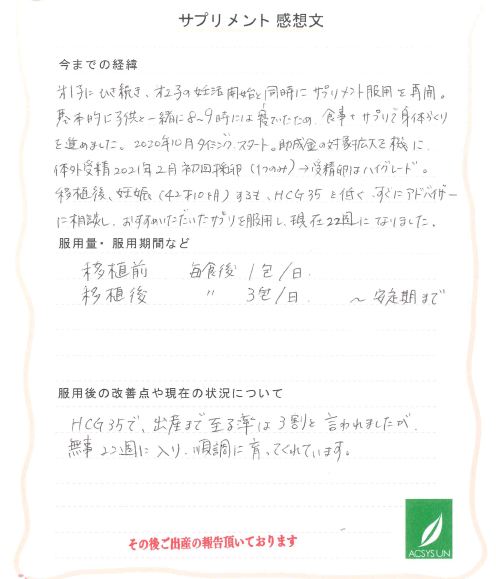 サプリメント 感想文
今までの経緯
才1子にひき続き、才2子の妊活開始と同時にサプリメント服用を再開。
基本的に子供と一緒に8~9時には寝ていたため、食事とサプリで身体づくり
を進めました。2020年10月タイミング.スタート。助成金の対象拡大を機に、
体外受精2021年2月初回採卵(1つのみ)→受精卵はハイグレード。
移植後、妊娠(42才10ヶ月)するも、HCG35と低く、すぐにアドバイザー
に相談し、おすすめいただいたサプリを服用し、現在22週になりました。
服用量・服用期間など
移植前 毎食後 1包/日.
移植後 〃 3包/日. ～安定期まで
服用後の改善点や現在の状況について
HCG35で、出産まで至る率は3割と言われましたが、
無事22週に入り、順調に育ってくれています。
その後ご出産の報告頂いております
ACSYS UN